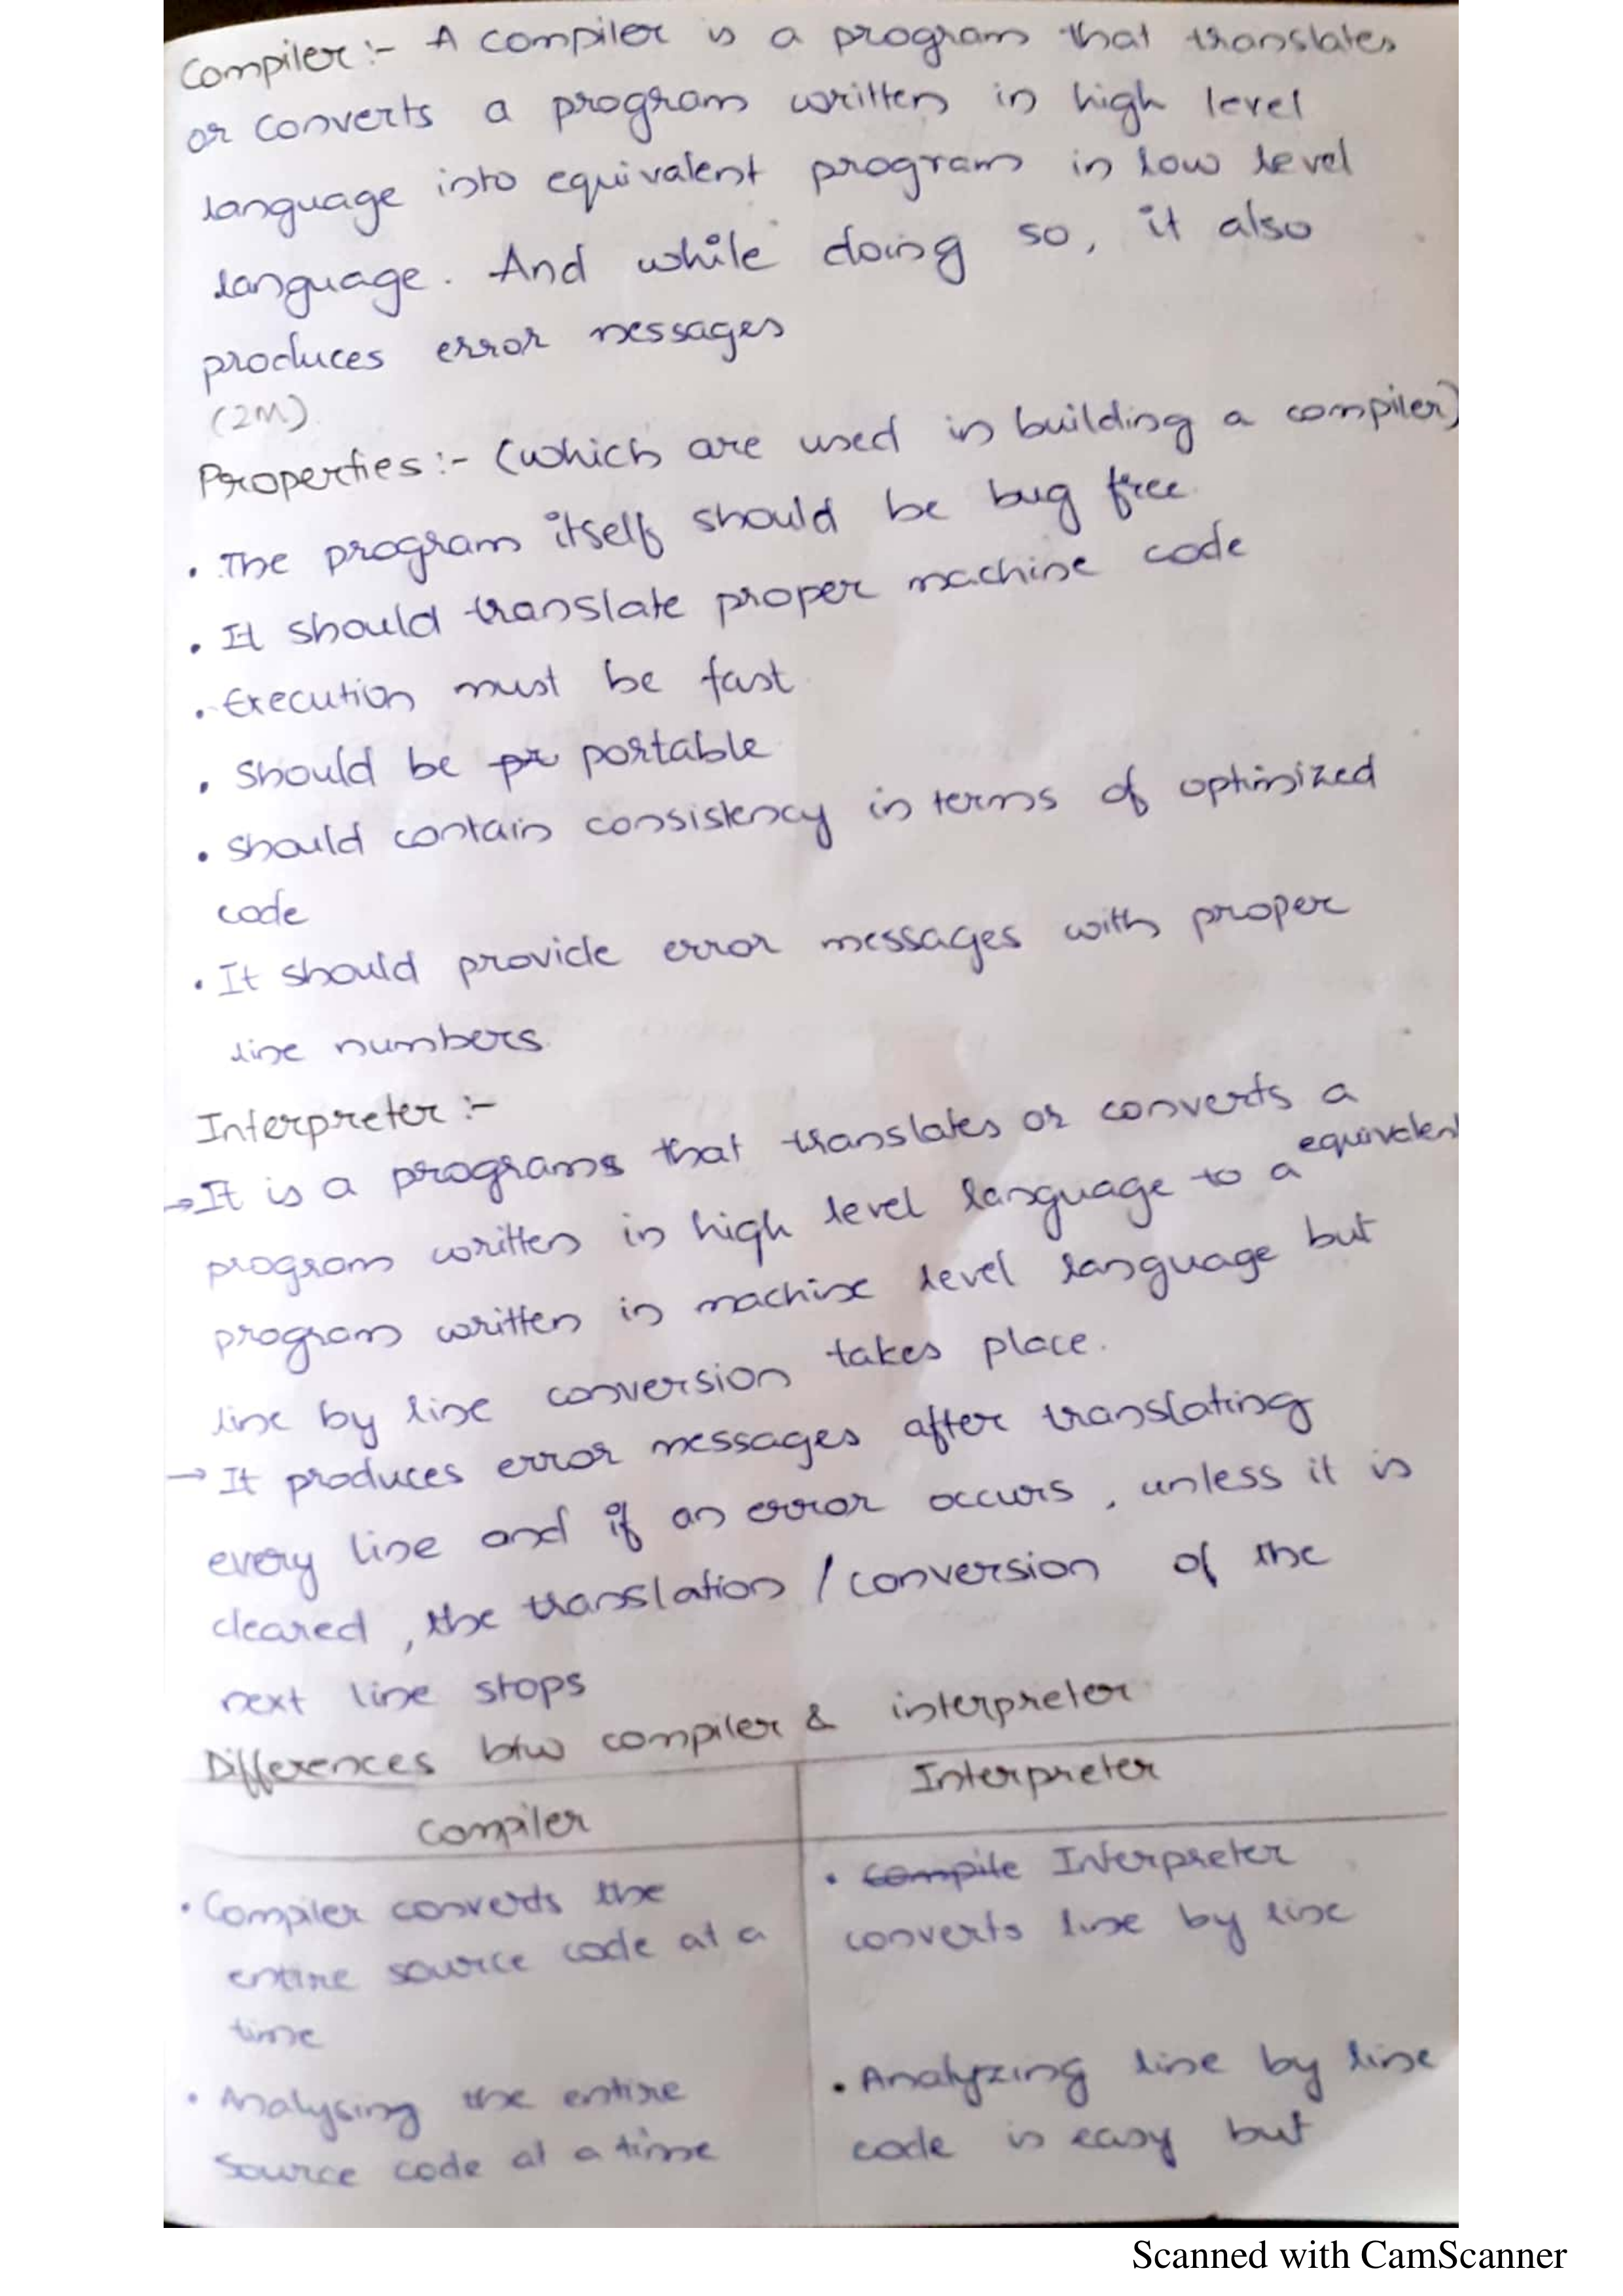 Compiler :- A compiler is a program that translates
or converts a program written in high level
language into equivalent program in low level
language. And while doing so, it also
produces error messages
(2M)
Properties :- (which are used in building a compiler)
• The program itself should be bug free
• It should translate proper machine code
• Execution must be fast
• Should be pr portable
• Should contain consistency in terms of optimized
code
• It should provide error messages with proper
line numbers
Interpreter :-
→ It is a programs that translates or converts a
program written in high level language to a equivalent
program written in machine level language but
line by line conversion takes place.
→ It produces error messages after translating
every line and if an error occurs, unless it is
cleared, the translation / conversion of the
next line stops
Differences btw compiler & interpreter
Compiler
• Compiler converts the
entire source code at a
time
• Analysing the entire
source code at a time
Interpreter
• Compile Interpreter
converts line by line
• Analyzing line by line
code is easy but
Scanned with CamScanner